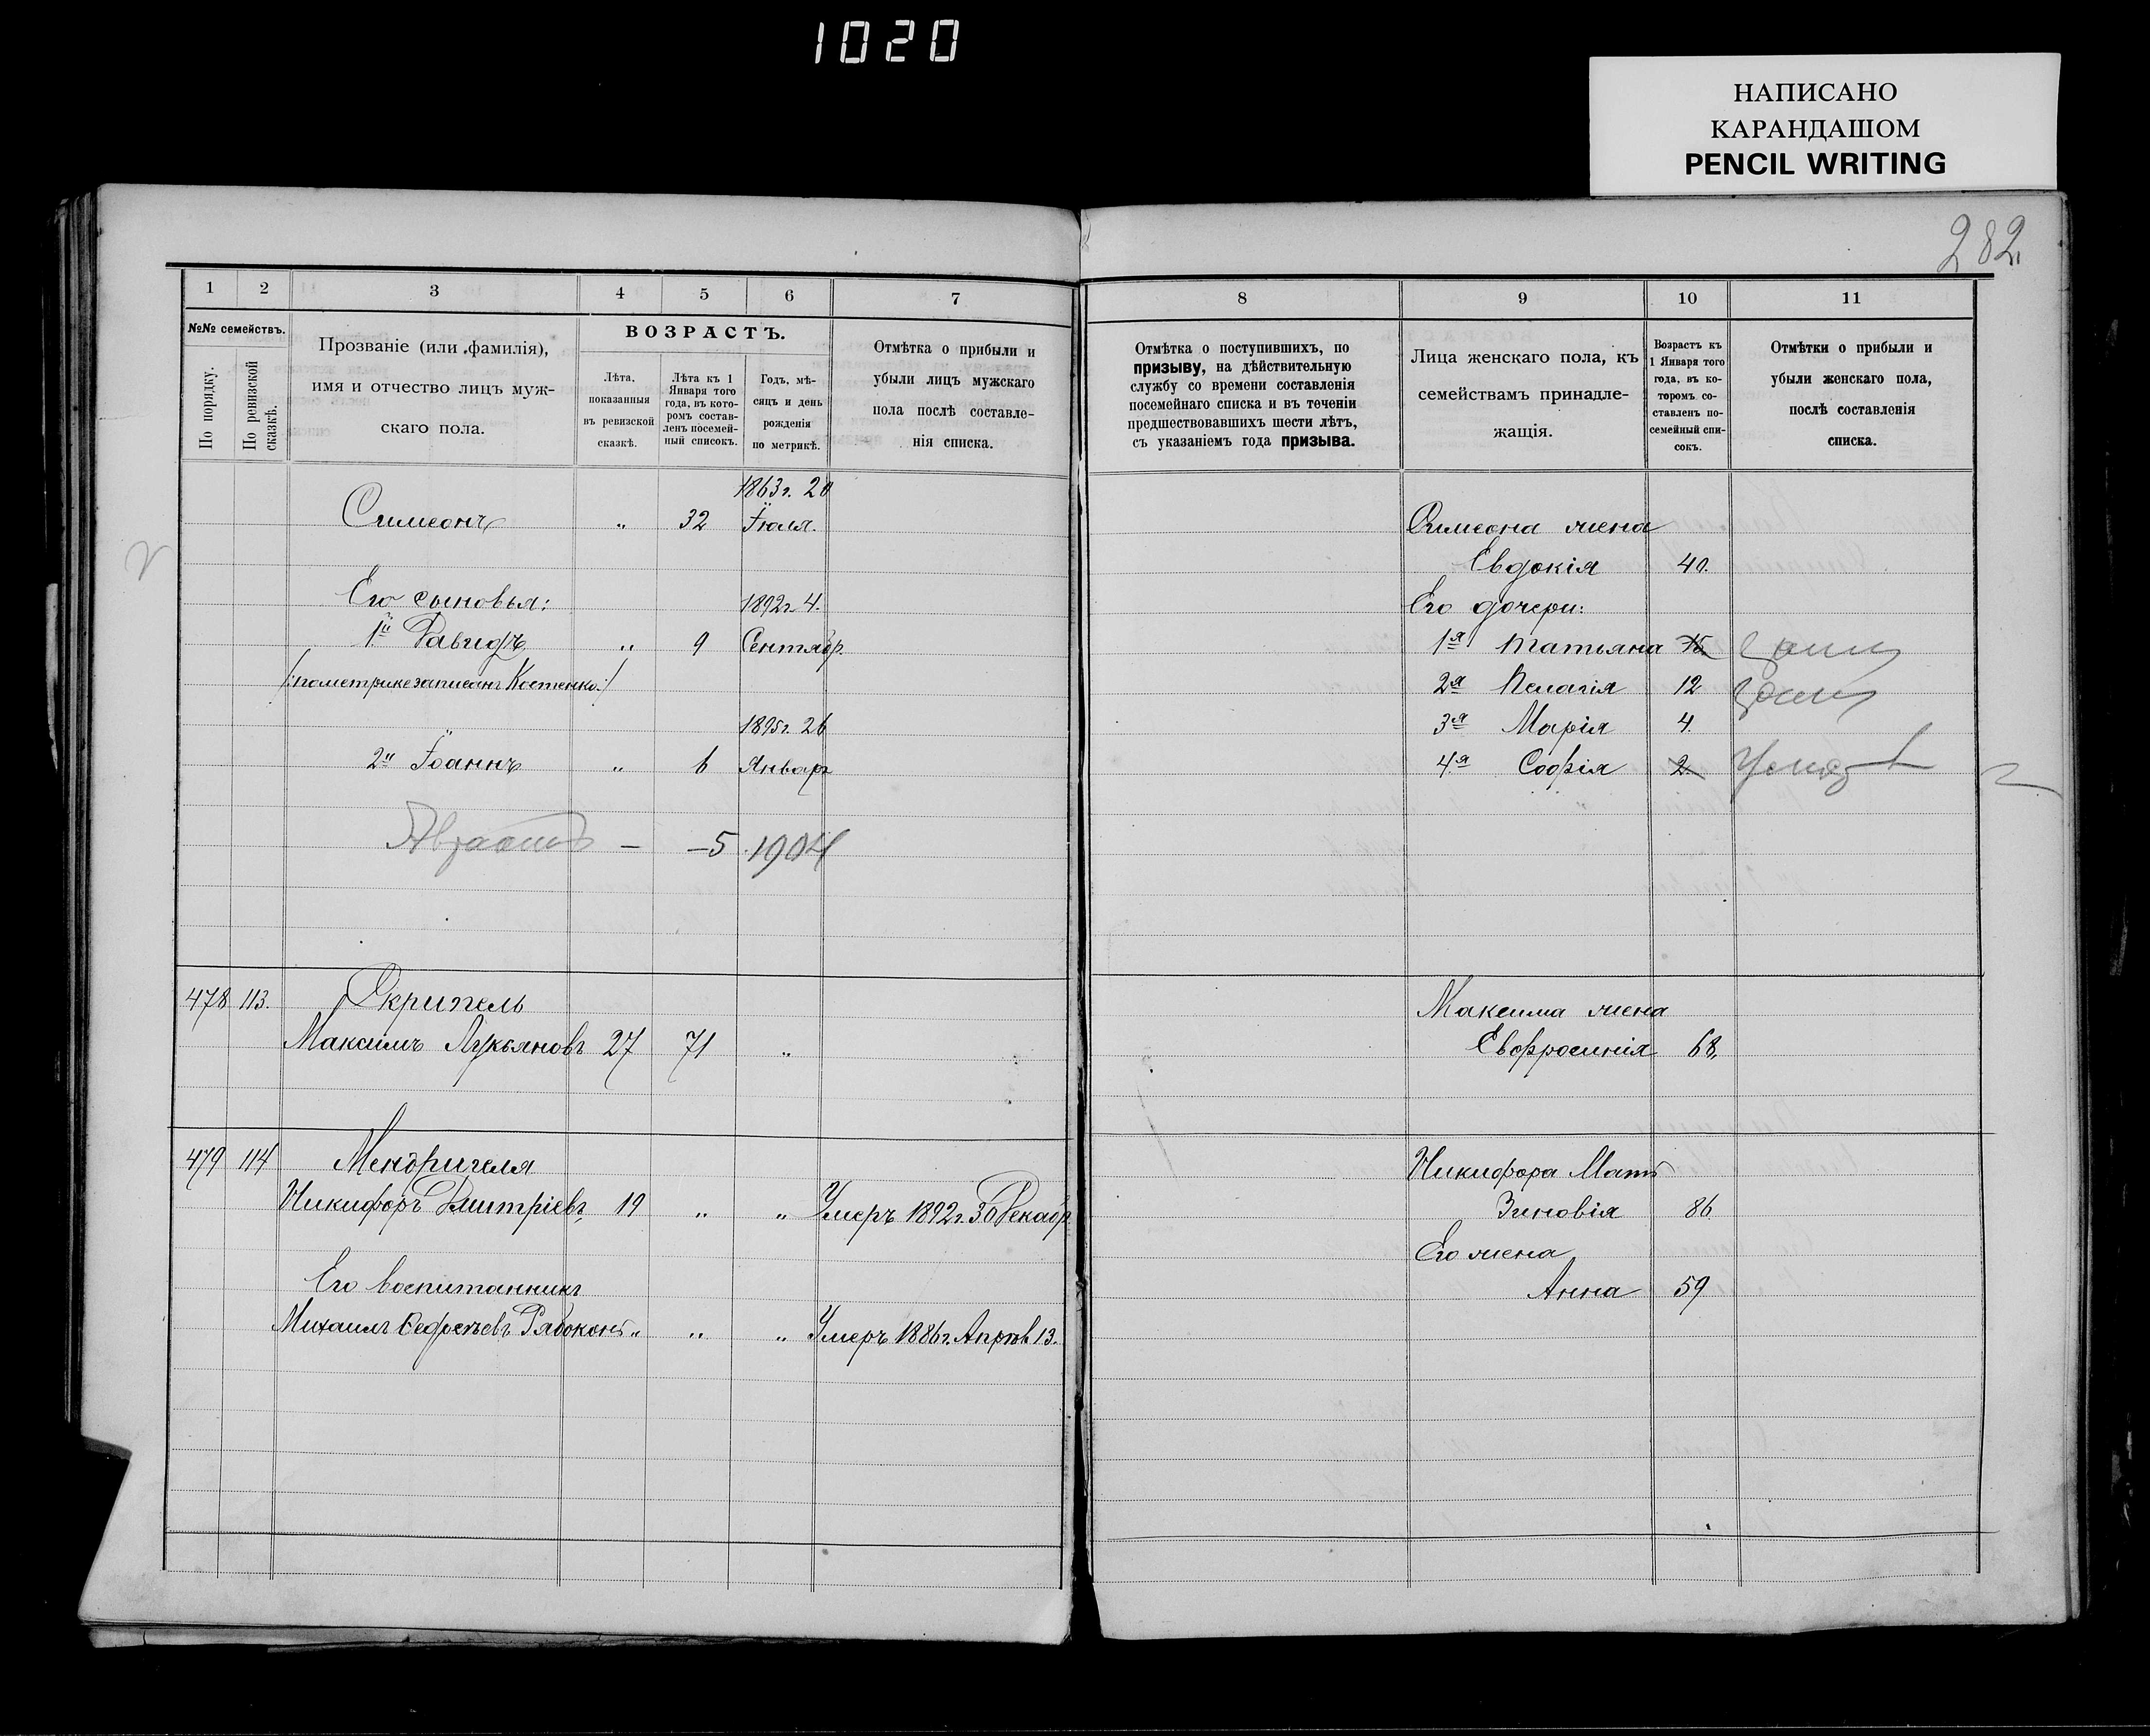 1020
НАПИСАНО
КАРАНДАШОМ
PENCIL WRITING
282
1 2 3 4 5 6 7
№№ семействъ.
По порядку.
По ревизской сказкѣ.
Прозваніе (или фамилія),
имя и отчество лицъ муж-
скаго пола.
ВОЗРАСТЪ.
Лѣта,
показанныя
въ ревизской
сказкѣ.
Лѣта къ 1
Января того
года, въ кото-
ромъ состав-
ленъ посемей-
ный списокъ.
Годъ, мѣ-
сяцъ и день
рожденія
по метрикѣ.
Отмѣтка о прибыли и
убыли лицъ мужскаго
пола послѣ составле-
нія списка.
1863г. 20
Симеонъ " 32 Іюля.
Его сыновья: 1892г. 4.
1й Давидъ " 9 Сентябр.
/:по метрике записанъ Костенко:/
1895г. 26
2й Іоаннъ " 6 Январ
— —5 1904
478 113. Скрипель
Максимъ Лукьяновъ 27 71 "
479 114 Мендригеля
Никифоръ Дмитріевъ 19 " " Умеръ 1892г. 30 Декабр.
Его воспитанникъ
Михаилъ Рябоконь " " " Умеръ 1886г. Апрѣл 13.
8 9 10 11
Отмѣтка о поступившихъ, по
призыву, на дѣйствительную
службу со времени составленія
посемейнаго списка и въ теченіи
предшествовавшихъ шести лѣтъ,
съ указаніемъ года призыва.
Лица женскаго пола, къ
семействамъ принадле-
жащія.
Возрастъ къ
1 Января того
года, въ ко-
торомъ со-
ставленъ по-
семейный спи-
сокъ.
Отмѣтки о прибыли и
убыли женскаго пола,
послѣ составленія
списка.
Симеона жена
Евдокія 40.
Его дочери:
1я Татьяна 15
2я Пелагія 12
3я Марія 4.
4я Софія 2
Максима жена
Евфросинія 68.
Никифора Мать
Зиновія 86
Его жена
Анна 59